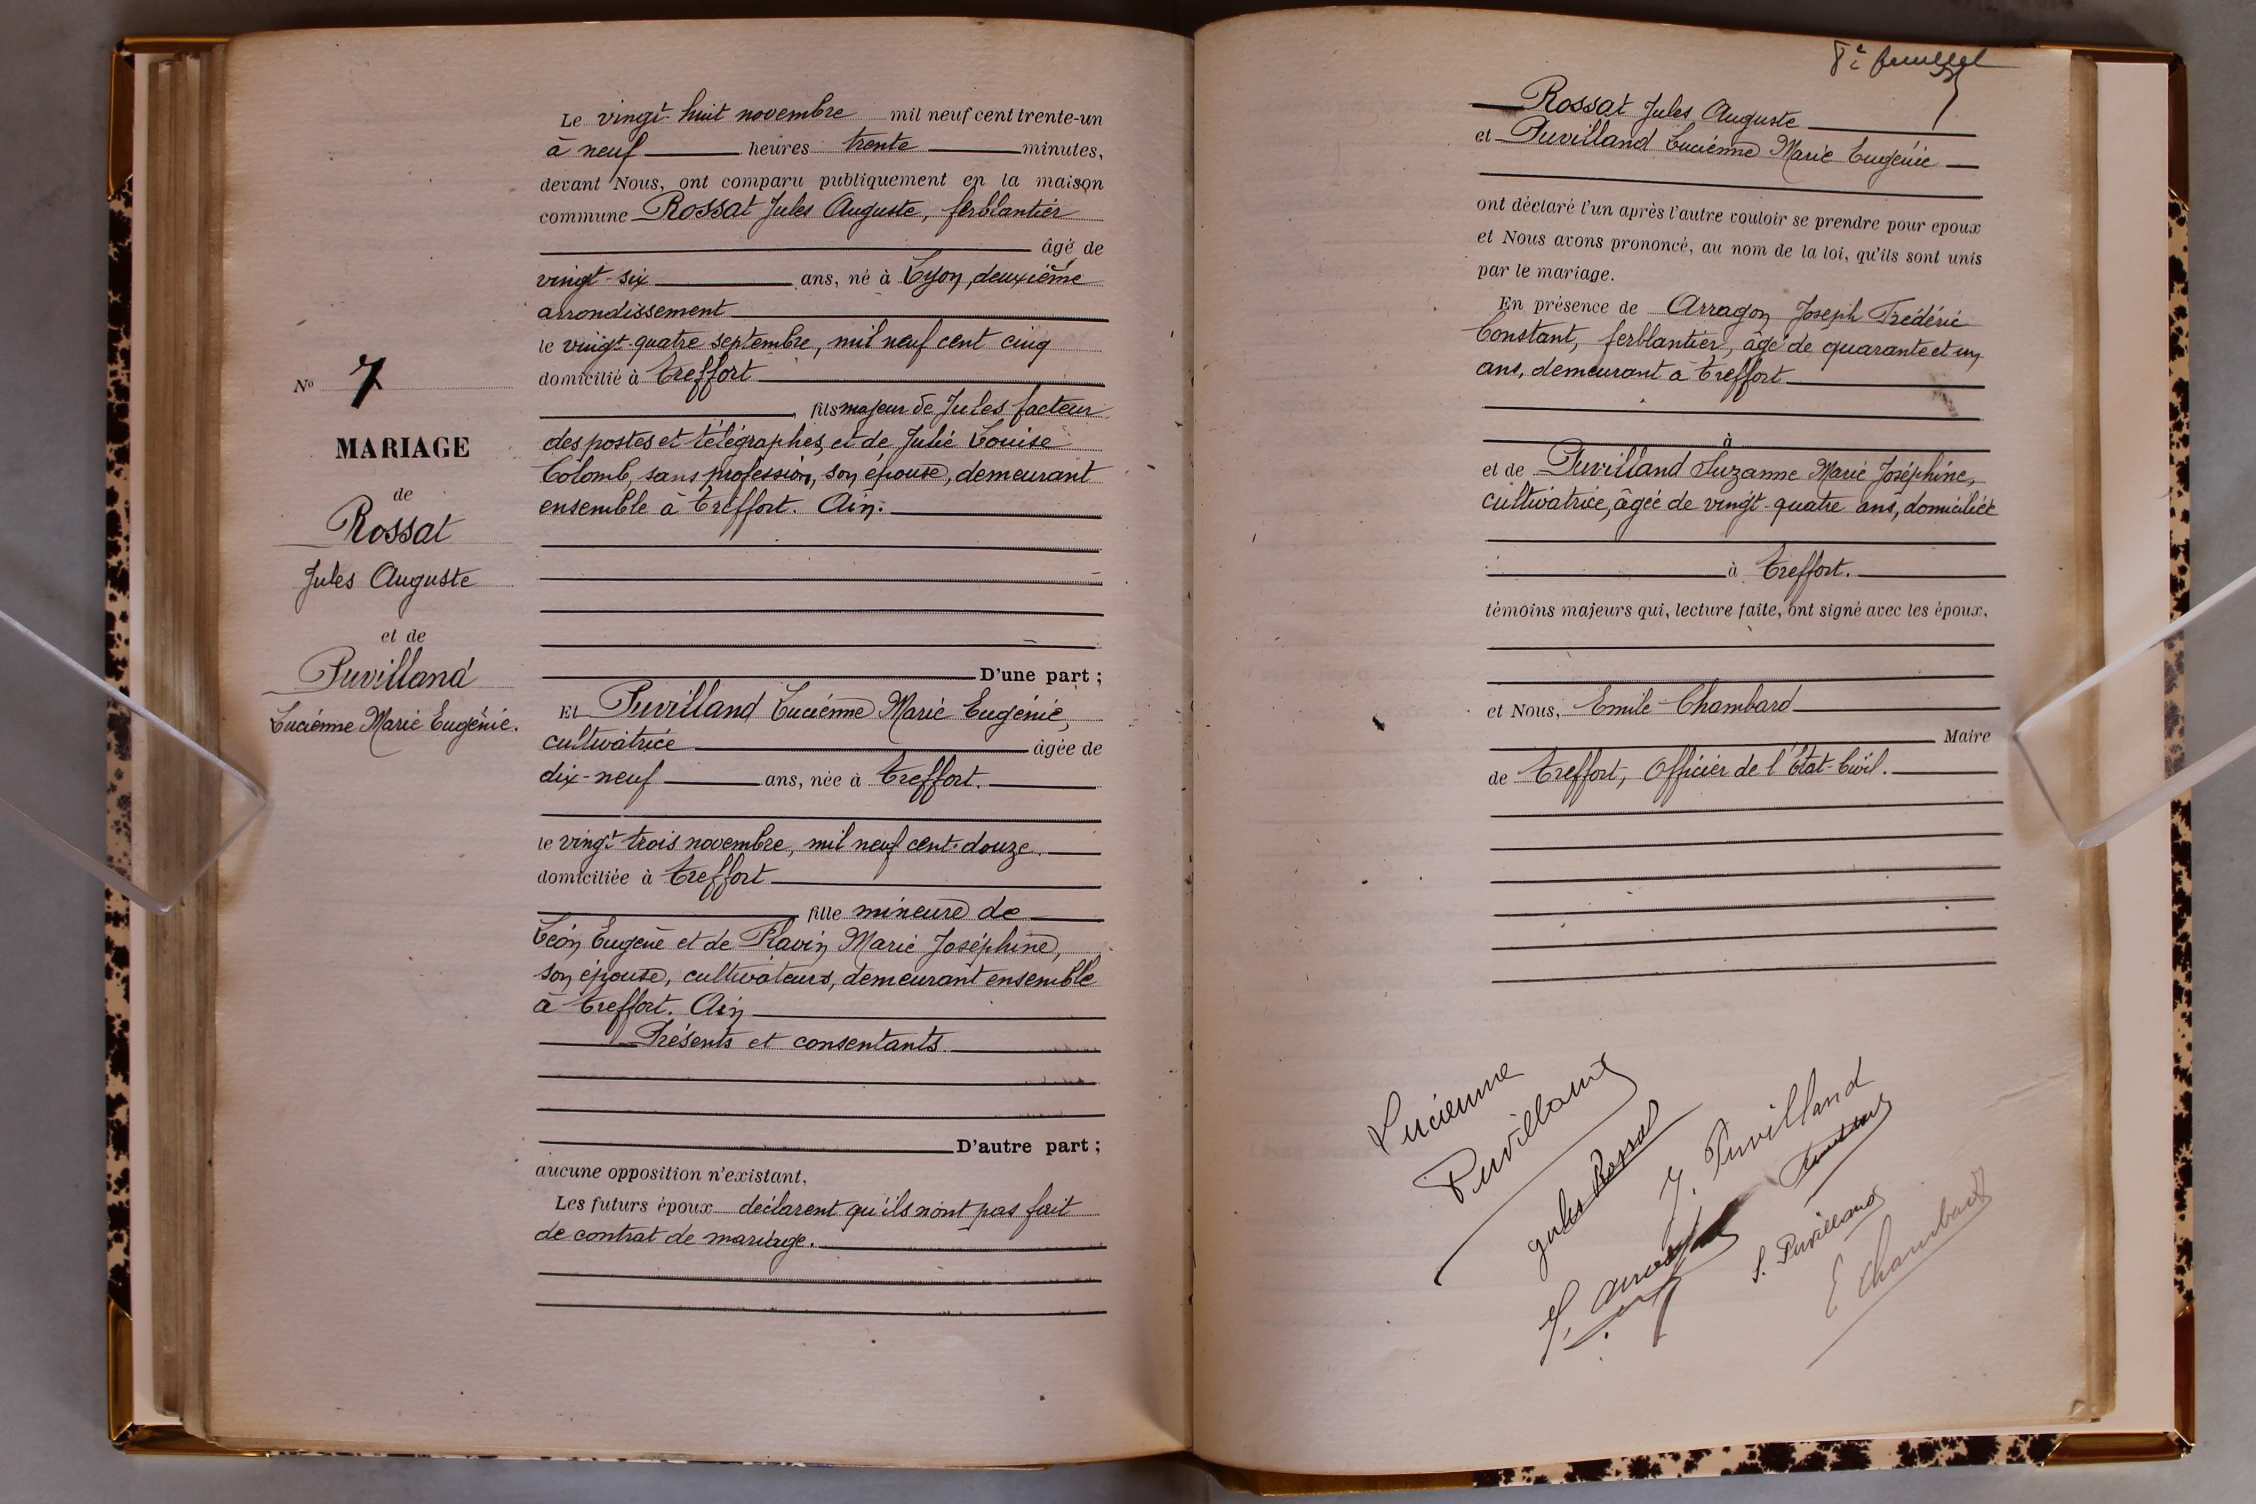 Le vingt-huit novembre mil neuf cent trente-un
à neuf heures trente minutes,
devant Nous, ont comparu publiquement en la maison
commune Rossat Jules Auguste, ferblantier
âgé de
vingt-six ans, né à Lyon, deuxième
arrondissement
le vingt-quatre septembre, mil neuf cent cinq
domicilié à Treffort
, fils majeur de Jules facteur
des postes et télégraphes, et de Julie Louise
Colomb, sans profession, son épouse, demeurant
ensemble à Treffort. Ain.
D'une part ;
Et Puvilland Lucienne Marie Eugénie,
cultivatrice âgée de
dix-neuf ans, née à Treffort.
le vingt trois novembre, mil neuf cent douze.
domiciliée à Treffort
fille mineure de
Léon Eugène et de Flavin Marie Joséphine,
son épouse, cultivateurs, demeurant ensemble
à Treffort. Ain
Présents et consentants
D'autre part ;
aucune opposition n'existant,
Les futurs époux déclarent qu'ils n'ont pas fait
de contrat de mariage.
No 7
MARIAGE
de
Rossat
Jules Auguste
et de
Puvilland
Lucienne Marie Eugénie.
8e feuillet
Rossat Jules Auguste
et Puvilland Lucienne Marie Eugénie
ont déclaré l'un après l'autre vouloir se prendre pour epoux
et Nous avons prononcé, au nom de la loi, qu'ils sont unis
par le mariage.
En présence de Arragon Joseph Frédéric
Constant, ferblantier, âgé de quarante et un
ans, demeurant à Treffort
à
et de Puvilland Suzanne Marie Joséphine,
cultivatrice, âgée de vingt-quatre ans, domiciliée
à Treffort.
témoins majeurs qui, lecture faite, ont signé avec les époux,
et Nous, Emile Chambard
Maire
de Treffort, Officier de l'Etat-Civil.
Lucienne
Puvilland
Jules Rossat
J. Puvilland
S. Puvilland
E Chambard